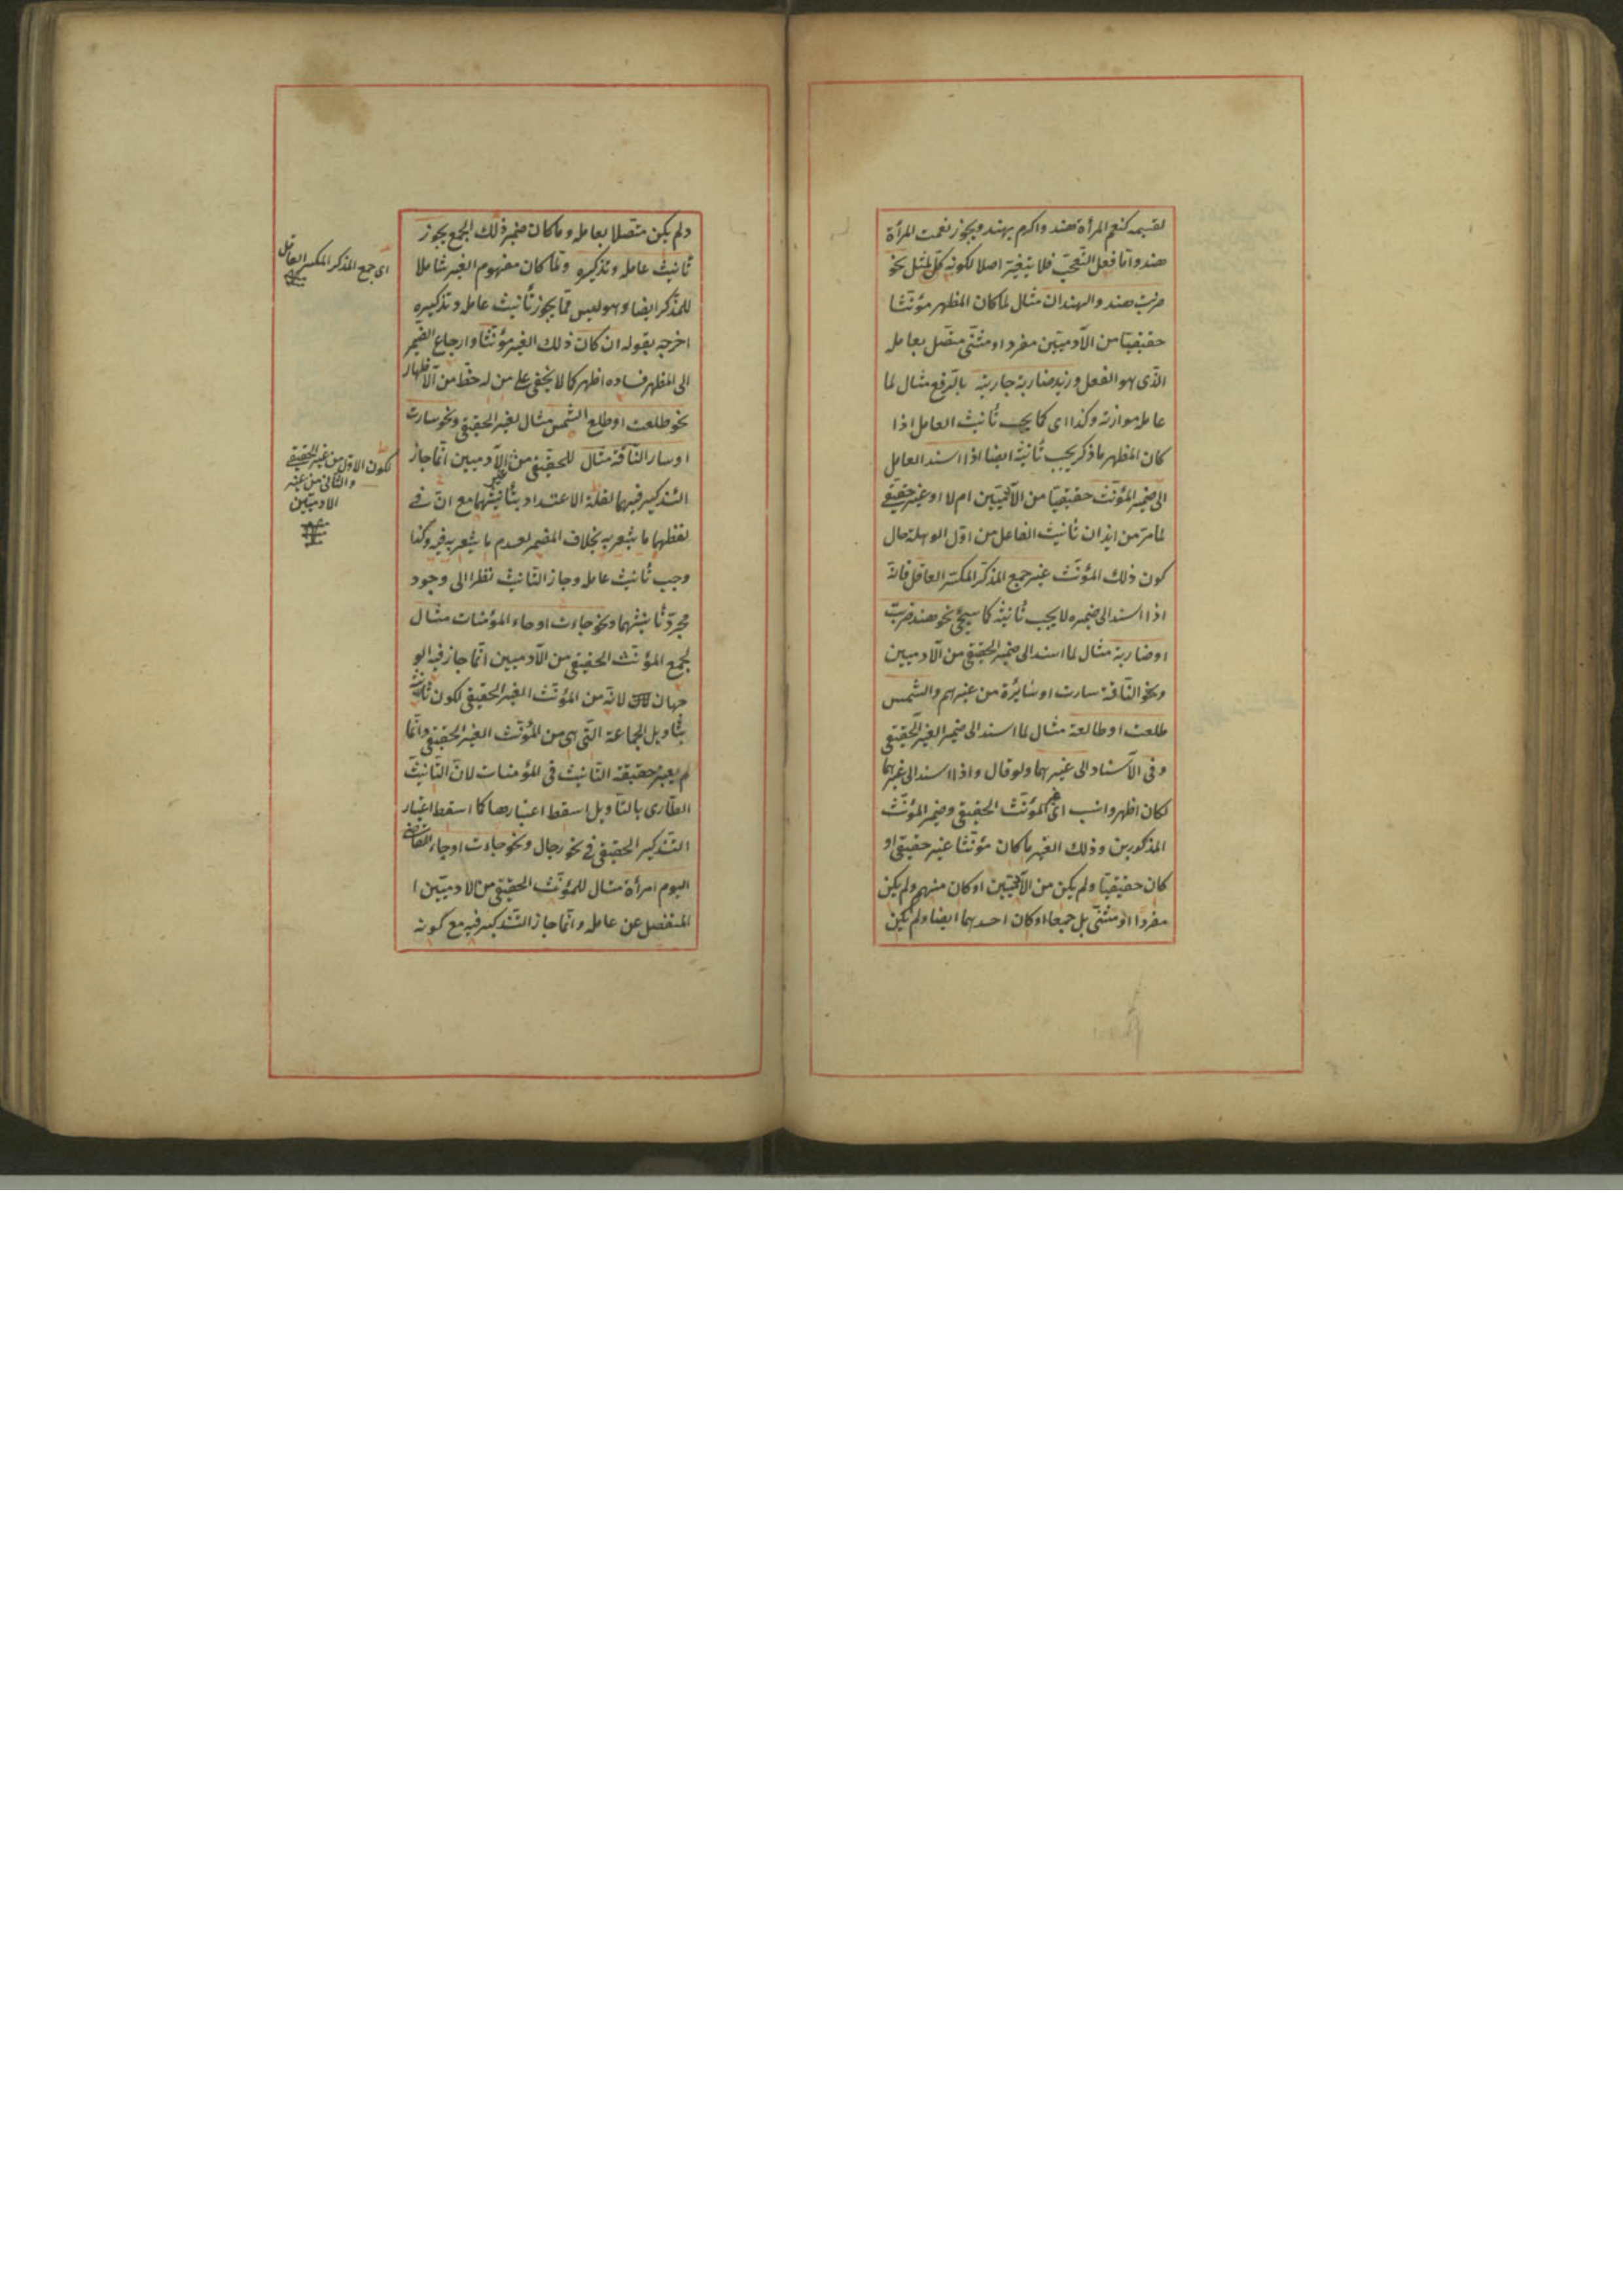 لقسيمه كنعم المرأة هند واكرم بهند ويجوز نعمت المرأة
هند واما فعل التعجب فلا يتغير اصلا لكونه كالمثل نحو
ضربت هند والهندان مثال لما كان المظهر مؤنثا
حقيقيا من الآدميين مفردا او مثنى متصل بعامله
الذى هو الفعل وزيد ضاربة جاريته بالرفع مثال لما
عامله موازنه وكذا اى كما يجب تأنيث العامل اذا
كان المظهر ما ذكر يجب تأنيثه ايضا اذا اسند العامل
الى ضمير المؤنث حقيقيا من الآدميين ام لا او غير حقيقى
لما مر من ايذان تأنيث الفاعل من اول الوهلة حال
كون ذلك المؤنث غير جمع المذكر المكسر العاقل فانه
اذا اسند الى ضميره لا يجب تأنيثه كما سيجئ نحو هند ضربت
او ضاربة مثال لما اسند الى ضمير الحقيقى من الآدميين
ونحو الناقة سارت او سائرة من غيرهم والشمس
طلعت او طالعة مثال لما اسند الى ضمير الغير الحقيقى
وفى الاسناد الى غيرهما ولو قال واذا اسند الى غيرهما
لكان اظهر وانسب اى المؤنث الحقيقى وضمير المؤنث
المذكورين وذلك الغير ما كان مؤنثا غير حقيقى او
كان حقيقيا ولم يكن من الآدميين او كان منهم ولم يكن
مفردا او مثنى بل جمعا او كان احدهما ايضا ولم يكن
ولم يكن متصلا بعامله وما كان ضمير ذلك الجمع يجوز
تأنيث عامله وتذكيره ولما كان مفهوم الغير شاملا
للمذكر ايضا وهو ليس مما يجوز تأنيث عامله وتذكيره
اخرجه بقوله ان كان ذلك الغير مؤنثا وارجاع الضمير
الى المظهر فساده اظهر كما لا يخفى على من له حظ من الاظهار
نحو طلعت او طلع الشمس مثال لغير الحقيقى ونحو سارت
او سار الناقة مثال للحقيقى من غير الآدميين انما جاز
التذكير فيهما لقلة الاعتداد بتأنيثهما مع ان فى
لفظهما ما يشعر به بخلاف المضمر لعدم ما يشعر به فيه وكذا
وجب تأنيث عامله وجاز التأنيث نظرا الى وجود
مجرد تأنيثهما ونحو جاءت او جاء المؤمنات مثال
لجمع المؤنث الحقيقى من الآدميين انما جاز فيه الو
جهان لانه من المؤنث الغير الحقيقى لكون تأنيثه
بتأويل الجماعة التى هى من المؤنث الغير الحقيقى وانما
لم يعتبر حقيقة التأنيث فى المؤمنات لان التأنيث
الطارى بالتأويل اسقط اعتبارها كما اسقط اعتبار
التذكير الحقيقى فى نحو رجال ونحو جاءت او جاء القاضى
اليوم امرأة مثال للمؤنث الحقيقى من الآدميين
المنفصل عن عامله وانما جاز التذكير فيه مع كونه
اى جمع المذكر المكسر العاقل
لكون الاول من غير الحقيقى
والثانى من غير
الادميين